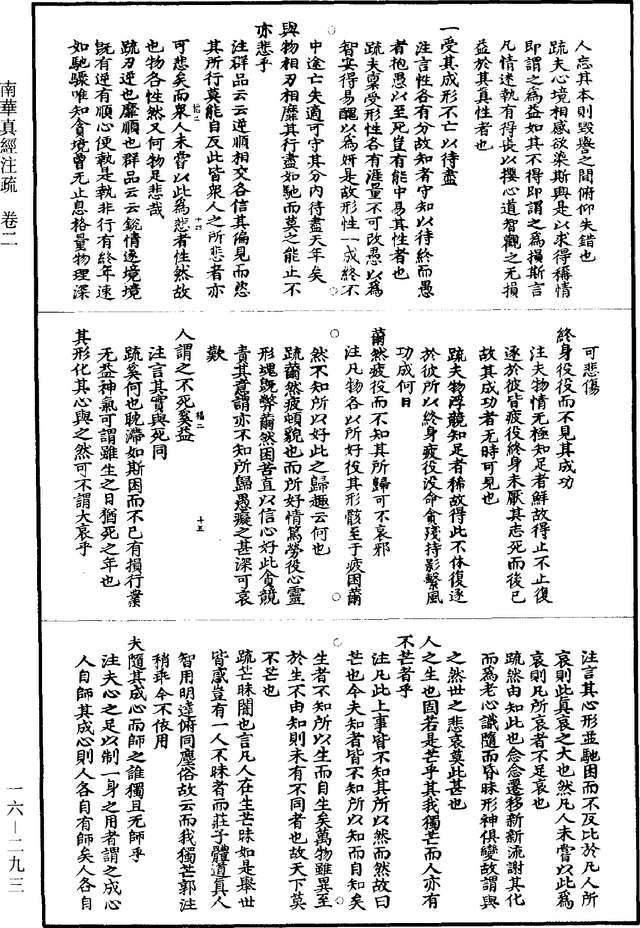 南華真經注疏 卷二
一六—二九三
人忘其本則毀譽之間俯仰失錯也
疏夫心境相感欲染斯興是以求得稱情
即謂之為益如其不得即謂之為損斯言
凡情迷執有得喪以攖心道智觀之無損
益於其真性者也
一受其成形不亡以待盡
注言性各有分故知者守知以待終而愚
者抱愚以至死豈有能中易其性者也
疏夫稟受形性各有涯量不可改愚以為
智安得易醜以為妍是故形性一成終不
中途亡失適可守其分內待盡天年矣
與物相刃相靡其行盡如馳而莫之能止不
亦悲乎
注群品云云逆順相交各信其偏見而恣
其所行莫能自反此皆眾人之所悲者亦
可悲矣而眾人未嘗以此為悲者性然故
也物各性然又何物足悲哉
疏刃逆也靡順也群品云云銳情逐境境
既有逆有順心便執是執非行有終年速
如馳驟唯知貪境曾無止息格量物理深
可悲傷
終身役役而不見其成功
注夫物情無極知足者鮮故得止不止復
逐於彼皆疲役終身未厭其志死而後已
故其成功者無時可見也
疏夫物浮競知足者稀故得此不休復逐
於彼所以終身疲役沒命貪殘持影繫風
功成何日
薾然疲役而不知其所歸可不哀邪
注凡物各以所好役其形骸至于疲困薾
然不知所以好此之歸趣云何也
疏薾然疲頓貌也而所好情篤勞役心靈
形魂既弊薾然困苦直以信心好此貪競
責其意謂亦不知所歸愚癡之甚深可哀
歎
人謂之不死奚益
注言其實與死同
疏奚何也耽滯如斯困而不已有損行業
無益神氣可謂雖生之日猶死之年也
其形化其心與之然可不謂大哀乎
注言其心形並馳困而不反比於凡人所
哀則此真哀之大也然凡人未嘗以此為
哀則凡所哀者不足哀也
疏然由如此也念念遷移新新流謝其化
而為老心識隨而昏昧形神俱變故謂與
之然世之悲哀莫此甚也
人之生也固若是芒乎其我獨芒而人亦有
不芒者乎
注凡此上事皆不知其所以然而然故曰
芒也今夫知者皆不知所以知而自知矣
生者不知所以生而自生矣萬物雖異至
於生不由知則未有不同者也故天下莫
不芒也
疏芒昧闇也言凡人在生芒昧如是舉世
皆惑豈有一人不昧者而莊子體道真人
智用明達俯同塵俗故云而我獨芒郭注
稍乖今不依用
夫隨其成心而師之誰獨且無師乎
注夫心之足以制一身之用者謂之成心
人自師其成心則人各自有師矣人各自